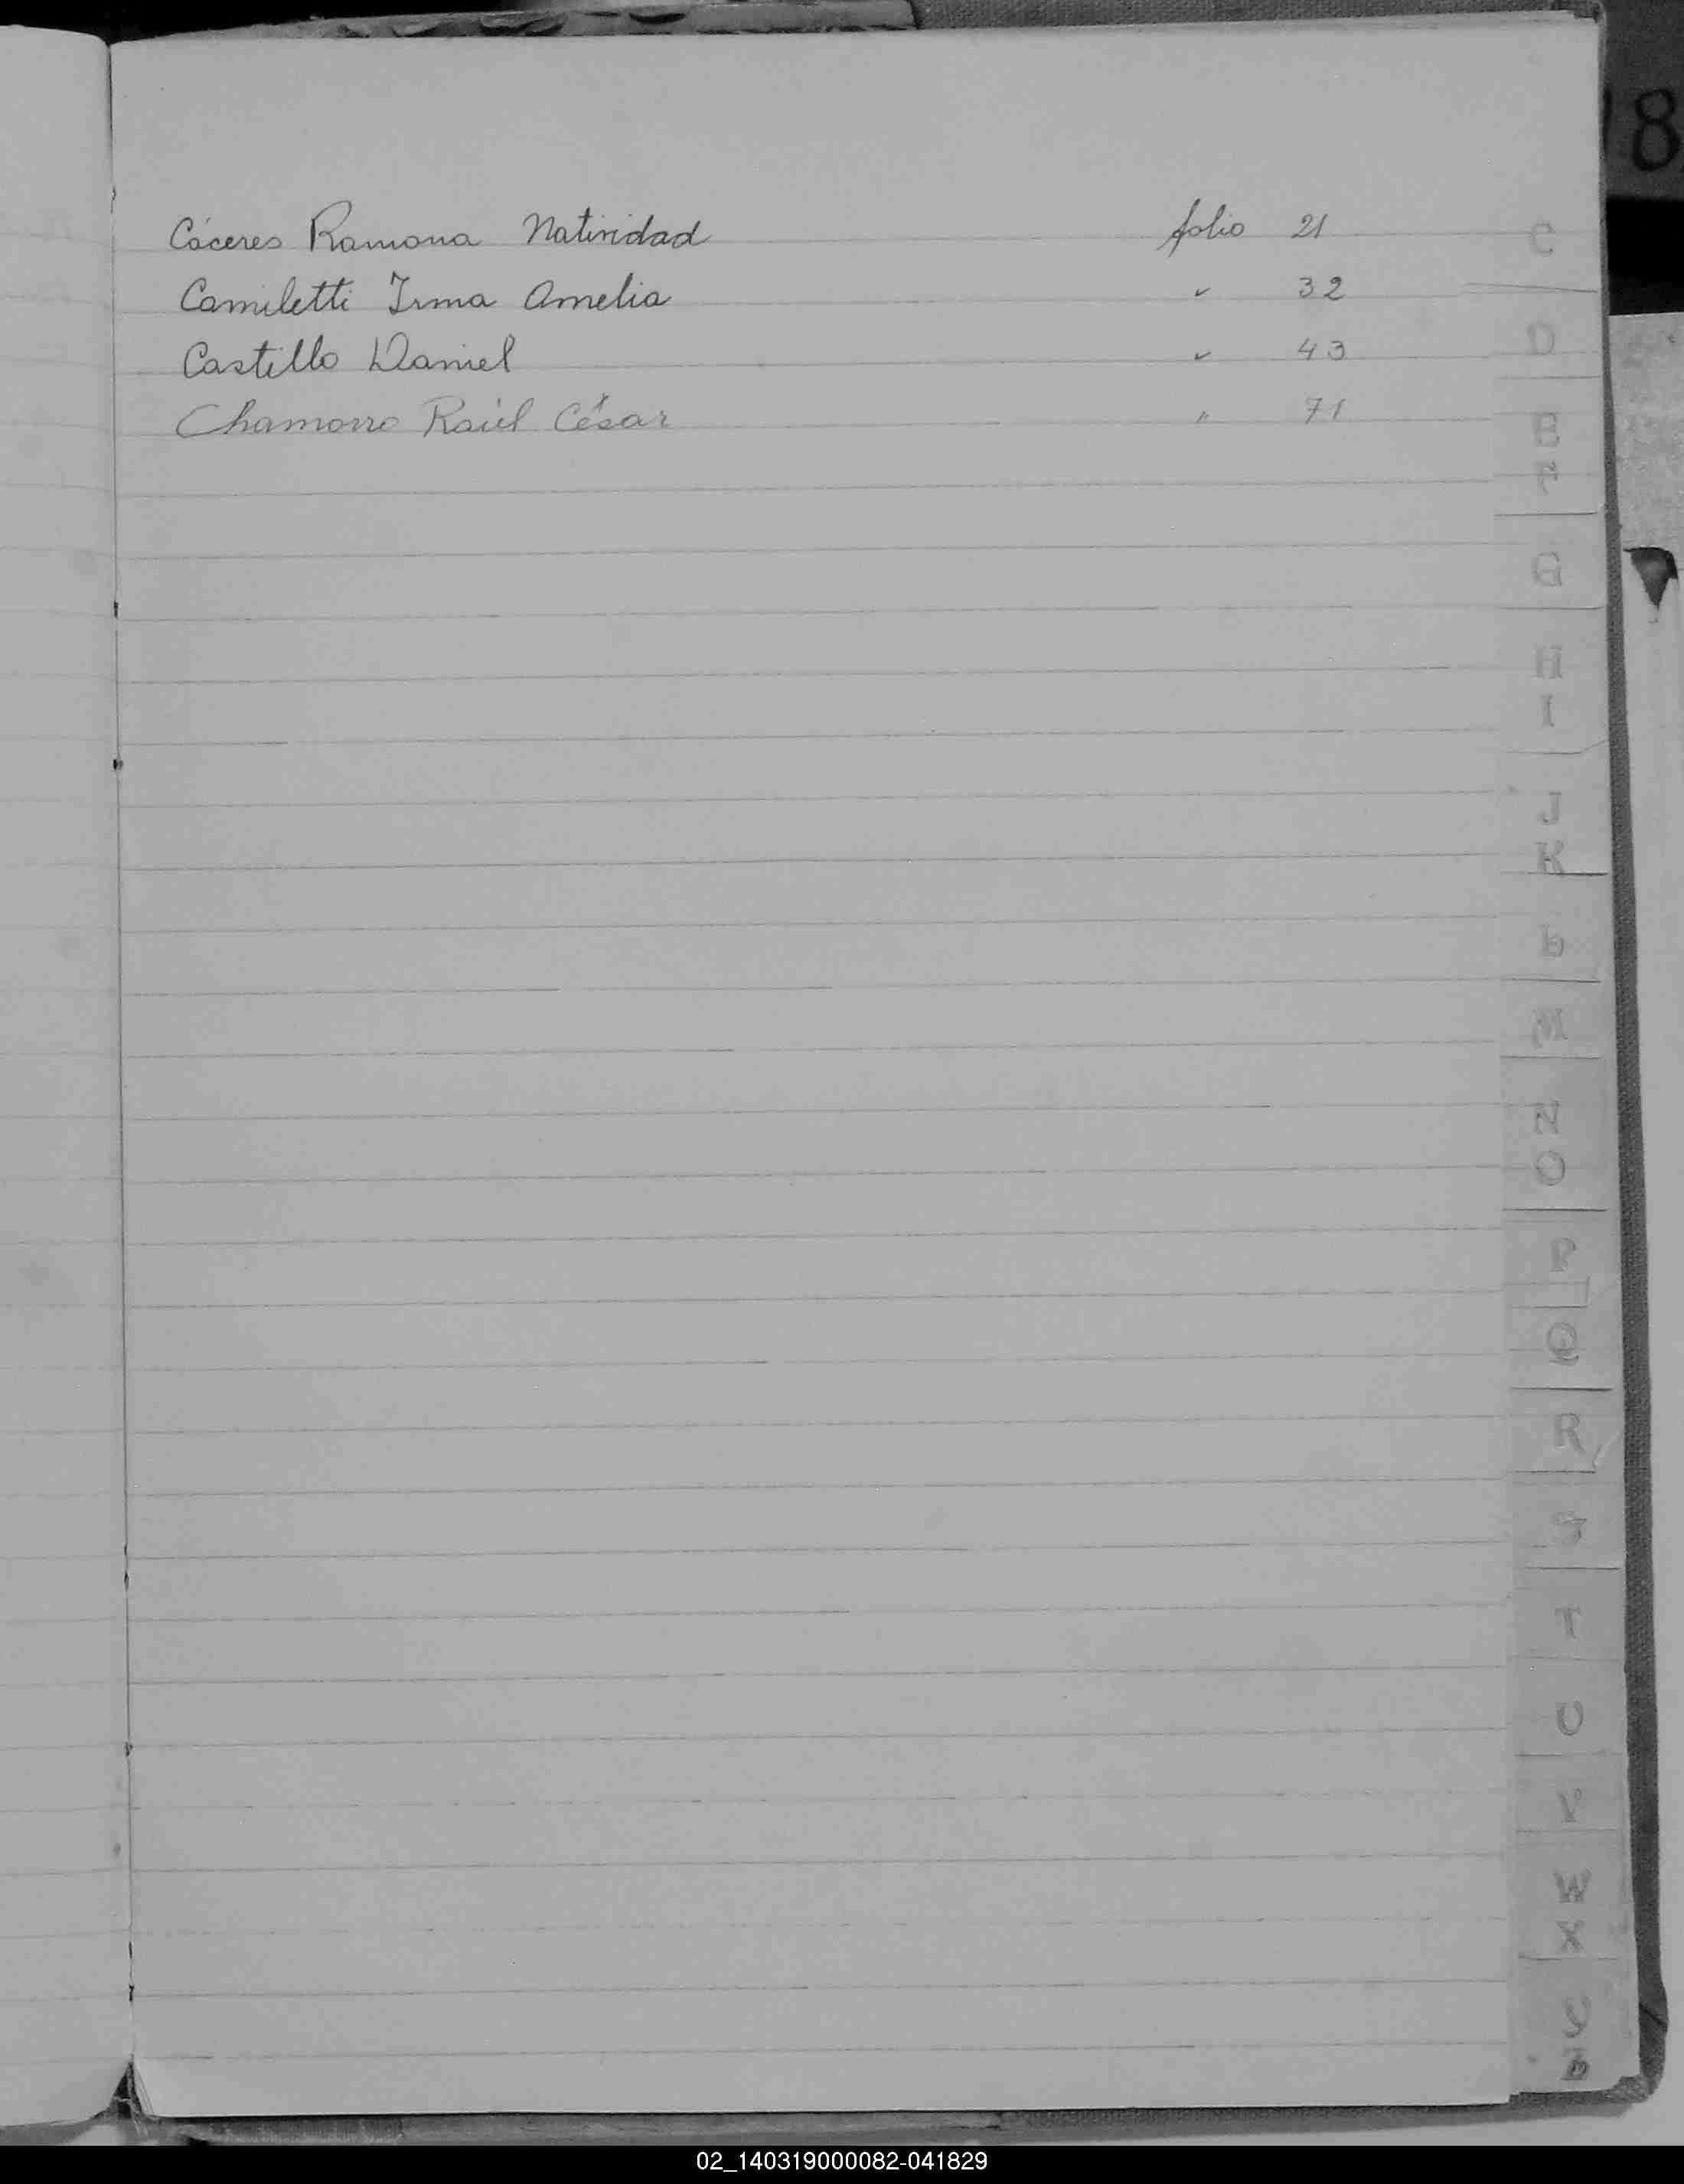 Cáceres Ramona Natividad folio 21
Camiletti Irma Amelia " 32
Castillo Daniel " 43
Chamorro Raúl César " 71
8
C
D
E
F
G
H
I
J
K
L
M
N
O
P
Q
R
S
T
U
V
W
X
Y
Z
02_140319000082-041829